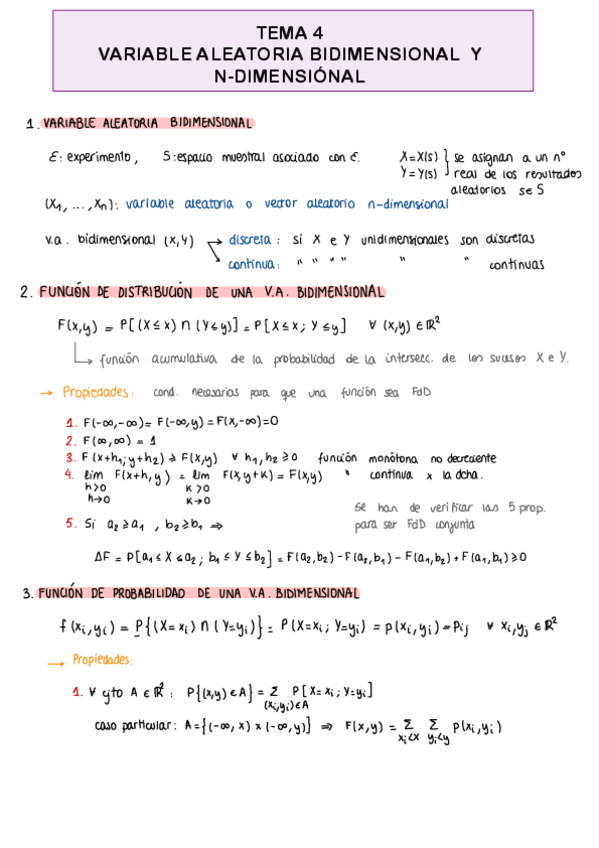 TEMA 4
VARIABLE ALEATORIA BIDIMENSIONAL Y
N-DIMENSIÓNAL
1. VARIABLE ALEATORIA BIDIMENSIONAL
E: experimento, S: espacio muestral asociado con E. X=X(s) } se asignan a un nº
Y=Y(s) } real de los resultados
aleatorios se S
(X1, ..., Xn): variable aleatoria o vector aleatorio n-dimensional
v.a. bidimensional (X,Y) → discreta: si X e Y unidimensionales son discretas
→ continua: " " " " " " continuas
2. FUNCIÓN DE DISTRIBUCIÓN DE UNA V.A. BIDIMENSIONAL
F(x,y) = P[(X≤x) ∩ (Y≤y)] = P[X≤x; Y≤y] ∀ (x,y) ∈ ℝ²
↳ función acumulativa de la probabilidad de la intersecc. de los sucesos X e Y.
→ Propiedades: cond. necesarias para que una función sea FdD
1. F(-∞,-∞) = F(-∞,y) = F(x,-∞) = 0
2. F(∞,∞) = 1
3. F(x+h1; y+h2) ≥ F(x,y) ∀ h1,h2 ≥ 0 función monótona no decreciente
4. lim F(x+h,y) = lim F(x,y+k) = F(x,y) " continua x la dcha.
h>0 k>0
h→0 k→0
Se han de verificar las 5 prop.
5. Si a2≥a1, b2≥b1 ⇒ para ser FdD conjunta
ΔF = P[a1≤X≤a2; b1≤Y≤b2] = F(a2,b2) - F(a2,b1) - F(a1,b2) + F(a1,b1) ≥ 0
3. FUNCIÓN DE PROBABILIDAD DE UNA V.A. BIDIMENSIONAL
f(xi,yi) = P{(X=xi) ∩ (Y=yi)} = P(X=xi; Y=yi) = p(xi,yi) = Pij ∀ xi,yj ∈ ℝ²
→ Propiedades:
1. ∀ cjto A ∈ ℝ²: P{(x,y) ∈ A} = Σ P[X=xi; Y=yi]
(xi,yi)∈A
caso particular: A={(-∞,x) x (-∞,y)} ⇒ F(x,y) = Σ Σ p(xi,yi)
xi<x yi<y